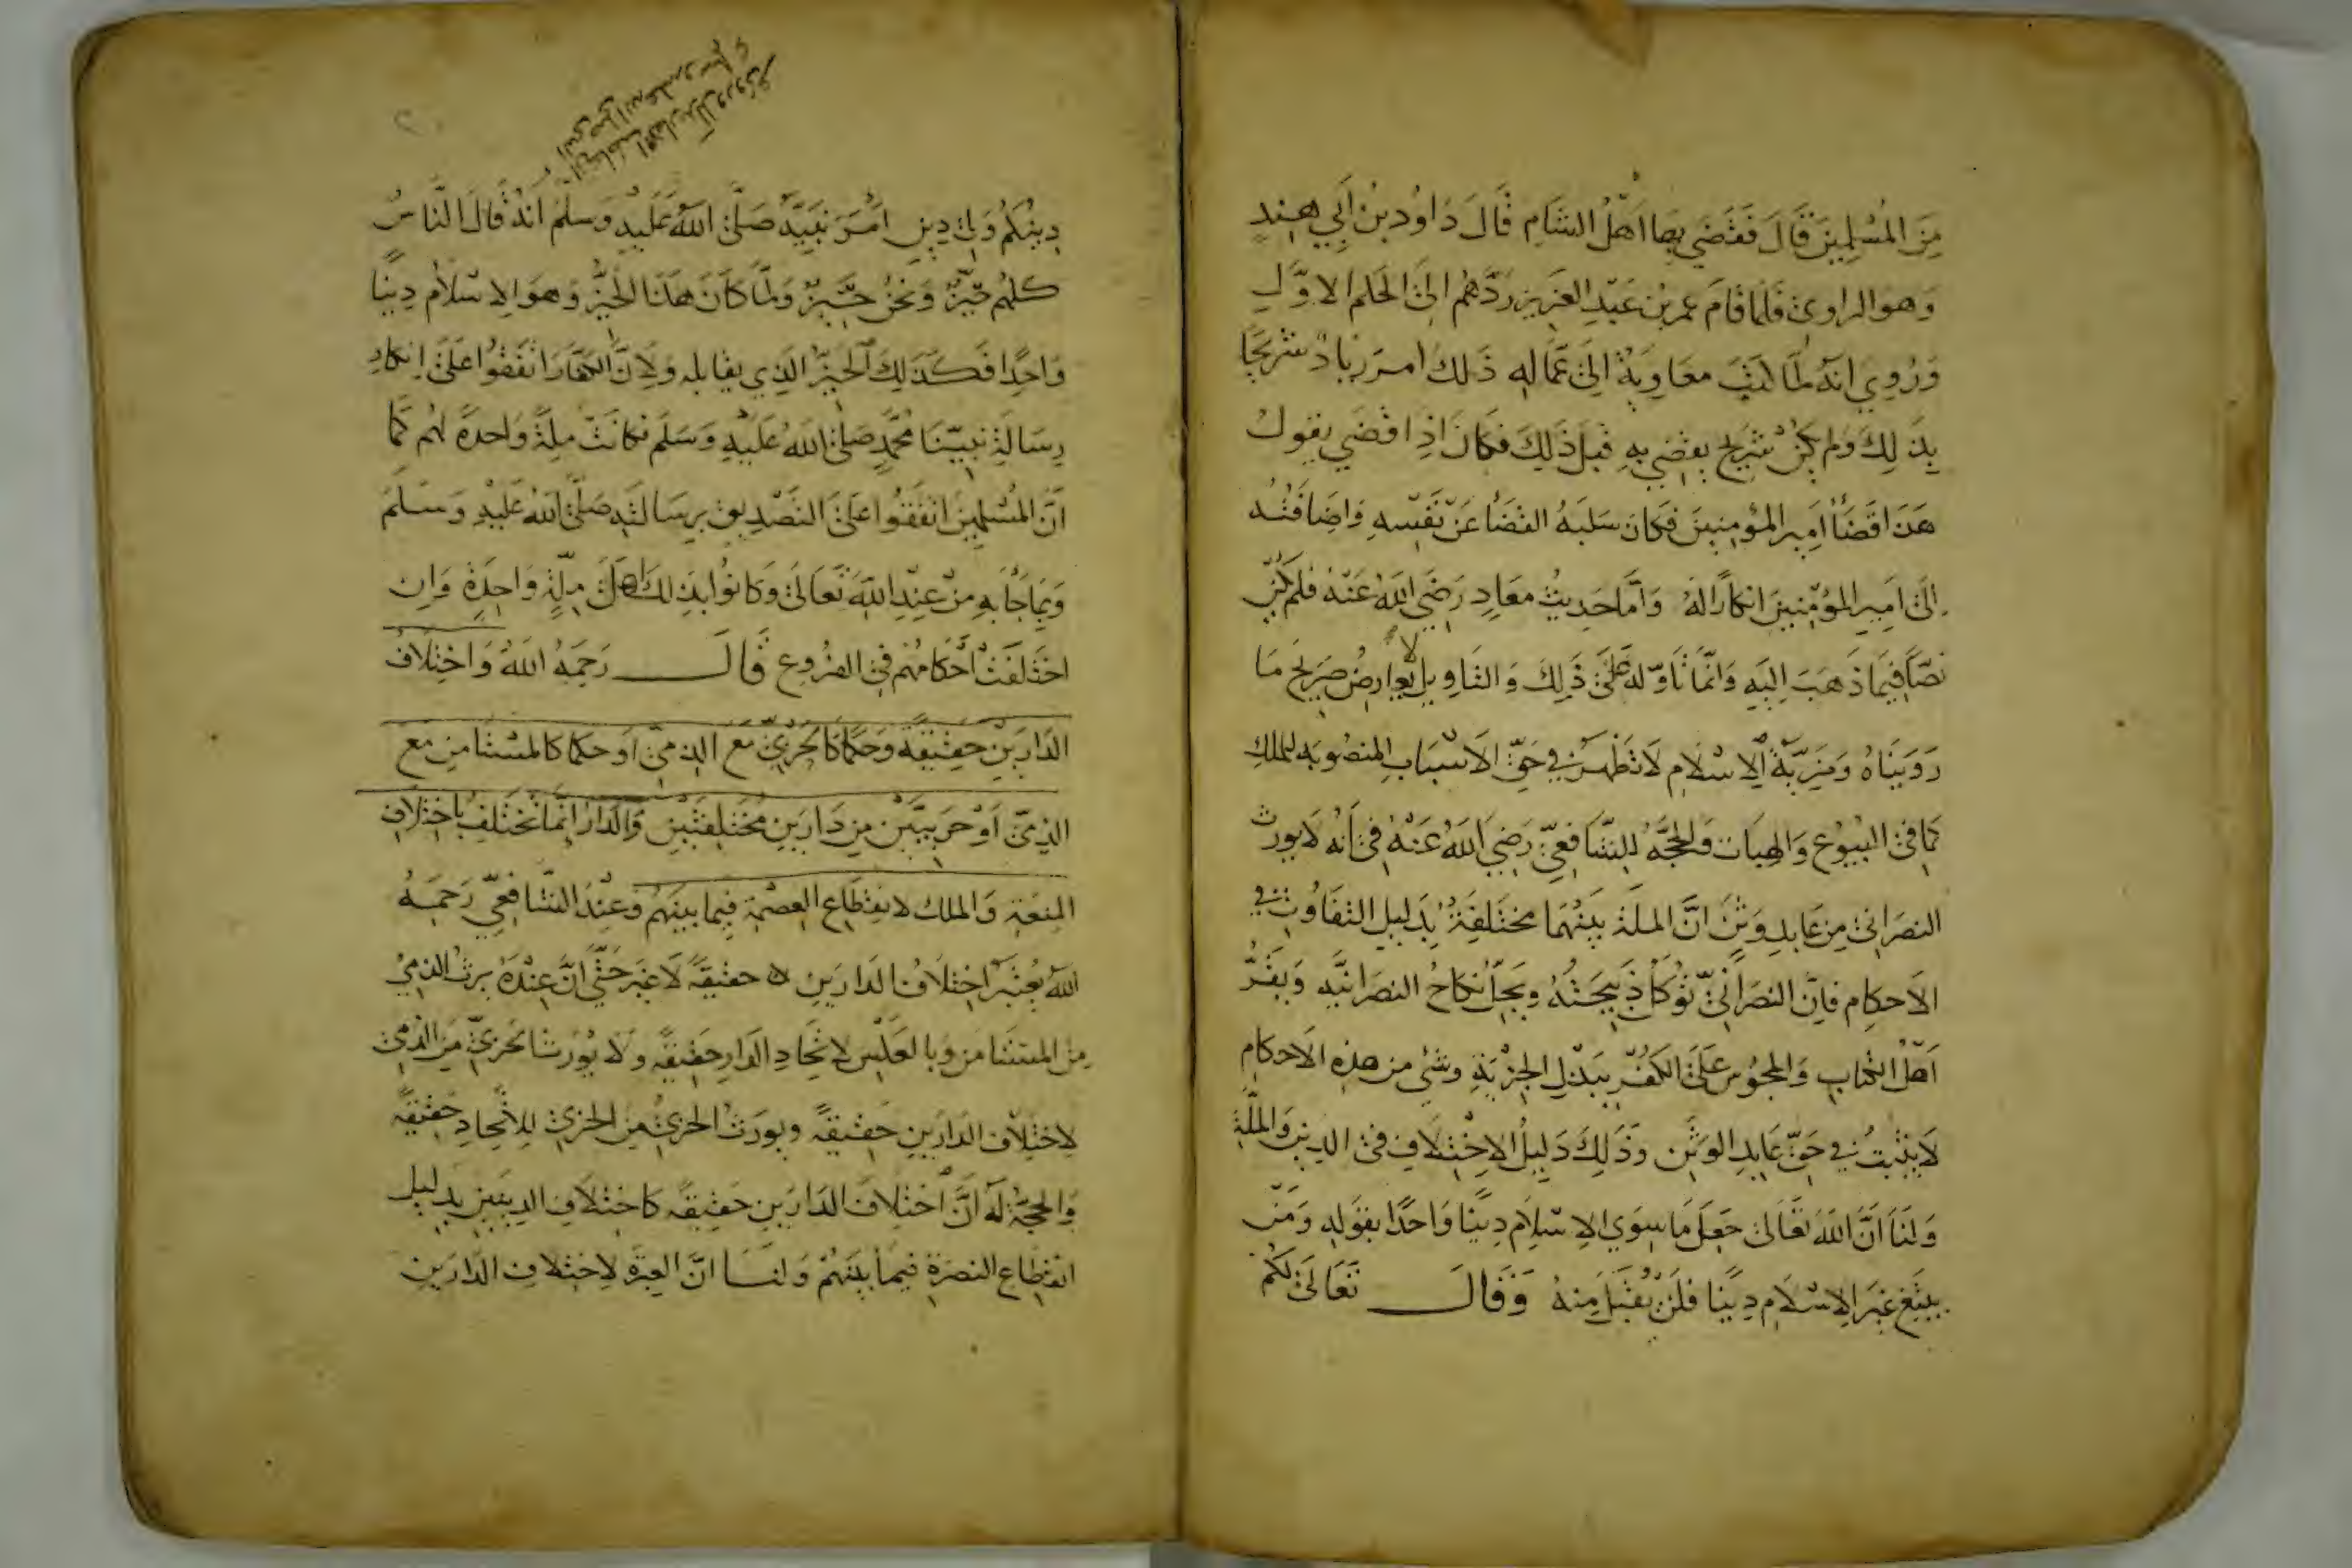 مِنَ المُسْلِمِينَ قَالَ فَقَضَي بِهَا اَهْلُ الشَامِ قَالَ دَاوُد بنُ اَبِي هِنْدٍ
وَهوَ الراوىٰ فَلمّا قَامَ عمر بْن عَبْدِ العَزِيزِ رَدَّهم الىَ الحكم الاوَّلِ
وَرُوِيَ انَّهُ لمَّا كتب معَاوِيَةُ الىَ عمّاله ذَلكَ امر زيادٌ شريحًا
بِذَلِكَ ولم يكن شريح يقضي به قَبلَ ذَلِكَ فكانَ اذِا قَضي يقولُ
هَذَا قَضَاُ اَمِيرِ المؤمِنينَ فكانَ سَلَبَهُ القضَا عَنْ نَفْسِهِ وَاضافَتُهُ
الىَ اَمِيرِ المؤمِنينَ انكارًا لهُ وَامَّا حَدِيثُ معَاذٍ رَضيَ اللهُ عَنْهُ فلم يكنْ
نَصًّا فِيمَا ذَهَبَ الِيَهِ وَانّمَا تَاوّلَهُ عَلىَ ذَلِكَ وَالتَاوِيل لا يعارضُ صَرِيحَ مَا
رَوَيْنَاهُ وَمَزِيَّةُ الاِسْلَامِ لَا تَظْهَرُ في حَقِّ الاَسْبَابِ المنصُوبَه للملكِ
كمَا في البُيُوع وَالهِبَات وَالحجَّه للِشَافعِيّ رَضِيَ اللهُ عَنهُ في اَنّهُ لَا يورث
النصرَانيّ مِن عَابِدِ وَثَنٍ انَّ الملَّةَ بَيْنَهُمَا مختَلفَةٌ بِدَلِيلِ التفَاوُتِ في
الاَحكام فاِنَّ النصرَانيّ تؤكَلُ ذَبِيحَتُهُ وَيحلّ نكاحُ النصرَانيَّه وَيقرُّ
اَهْلُ الكتابِ وَالمجُوس عَلىَ الكُفْرِ بِبَذْلِ الجِزيَةِ وشَيٌ من هذِه الاحكام
لَا يثبتُ في حَقِّ عَابِدِ الوَثَنِ وَذَلكَ دَلِيلُ الاِخْتِلَافِ في الدينِ وَالملّةِ
وَلنَا اَنَّ اللهَ تَعَالىَ جَعَلَ مَا سِوَي الاِسْلَامِ دِينًا وَاحدًا بقولهِ وَمَنْ
يبْتَغِ غَيرَ الاِسْلَامِ دِينًا فَلَنْ يُقْبَلَ مِنهُ وَقَالَ تَعَالىَ لكُمْ
دِينكُمْ وَلِيَ دِينِ اَمَرَ نَبِيَّهُ صَلّىَ اللهُ عَلَيْهِ وَسَلمَ انهُ قَالَ النّاسُ
كلهُم حَيِّزٌ وَنحنُ حَيِّزٌ وَلمّا كَانَ هَذَا الحَيِّزُ وَهوَ الاِسْلَامُ دِينًا
وَاحِدًا فكَذَلِكَ الحَيِّزُ الذِي يقابله وَلاِنَّ الكفّارَ اتفَقُوا عَلىَ اِنكارِ
رِسَالَةِ نَبيّنَا مُحَمّدٍ صَلىَ اللهُ عَلَيْهِ وَسَلَم فكانَتْ ملِةً وَاحدةً لهُم كَمَا
انَّ المُسْلِمِينَ اتفَقُوا عَلىَ التصْدِيقِ بِرِسَالَتِه صَلَّى اللهُ عَلَيْهِ وَسَلمَ
وَبمَا جَآ بهِ مِنْ عِنِدِ اللهِ تَعَالىَ وَكَانوُا بِذَلكَ اَهْلَ مِلّةٍ وَاحِدَةٍ وَانِ
اختَلفَتْ اَحْكامُهُم في الفرُوع قَالَ رَحِمَهُ اللهُ وَاختِلَافُ
الدَارَيْنِ حَقِيقَةً وَحكمًا كالحَرْبيِّ مَع الذِمِيِّ اَو حكمًا كالمسْتَامِن مَع
الذِمِيِّ اَوْ حَربِيَّيْنِ مِن دَارَينِ مُختَلِفَتَيْنِ وَالدَارُ اِنَّمَا تختَلِفُ بِاخْتِلَافِ
المنعَةِ وَالملكِ لانقِطَاعِ العِصْمَة فِيمَا بينَهُم وَعِنْدَ الشَّافِعِيّ رَحمَهُ
اللهُ يُعْتَبَرُ اخْتِلَافُ الدَارَينِ حَقيقَةً لَا غَيرَ حَتَّي انَّ عِنْدَهُ يرثُ الذمِيُّ
مِنَ المستَامن وَبالعَكْسِ لاتحَادِ الدَارِ حَقِيقَةً وَلا يُورَثُ الحَربيّ مِنَ الذمّيّ
لاِختِلَافِ الدَارَينِ حَقيقَةً وَيورَثُ الحَربيُّ منَ الحَربيّ للاِتحَادِ حَقيقَةً
وَالحجَّةُ لَهُ اَنَّ اخْتِلَافَ الدَارَينِ حَقِيقَةً كَاختِلَافِ الدِينَينِ بِدَليلِ
انْقِطَاعِ النصرَةِ فيمَا بَينَهُمْ وَلنَا انَّ العِبرَةَ لاختِلافِ الدَارَينِ